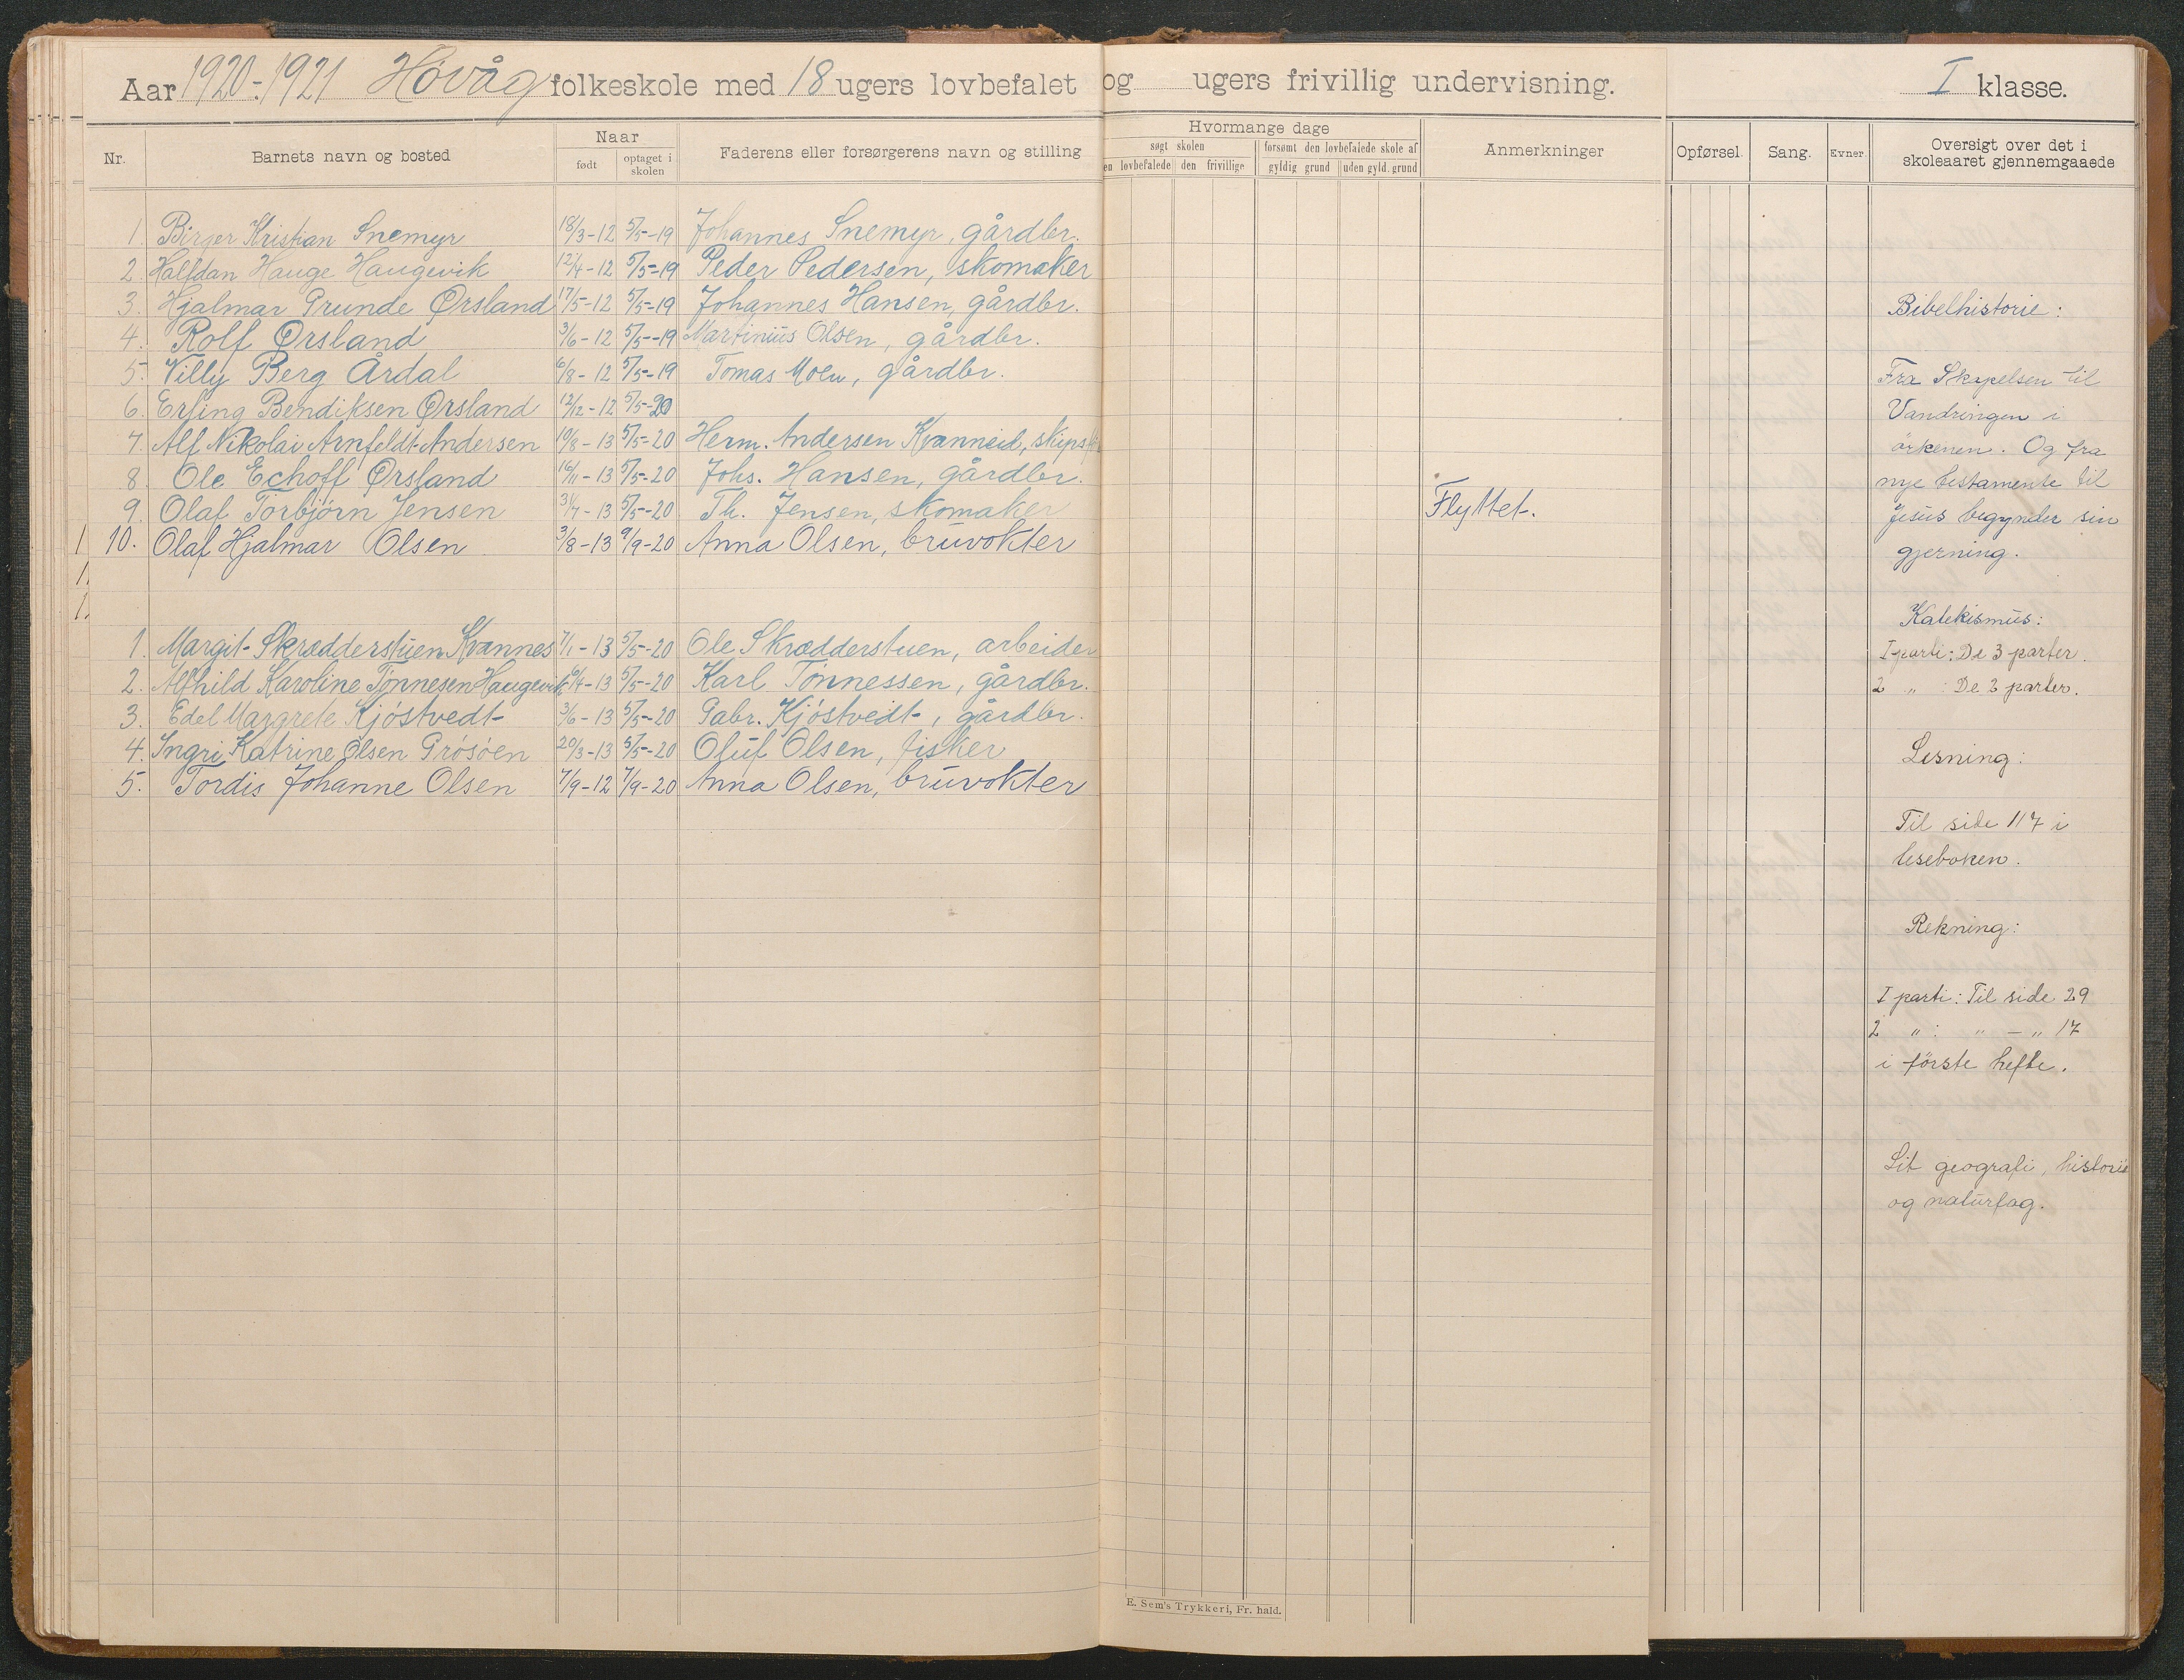 Aar 1920-1921 Høvåg folkeskole med 18 ugers lovbefalet og ugers frivillig undervisning.
I klasse.
Nr.
Barnets navn og bosted
Naar
født
optaget i skolen
Faderens eller forsørgerens navn og stilling
Hvormange dage
søgt skolen
forsømt den lovbefalede skole af
en lovbefalede
den frivillige
gyldig grund
uden gyld. grund
Anmerkninger
Opførsel
Sang.
Evner
Oversigt over det i
skoleaaret gjennemgaaede
1. Birger Kristian Snemyr 18/3-12 5/5-19 Johannes Snemyr, gårdbr.
2. Halfdan Hauge Haugevik 12/4-12 5/5-19 Peder Pedersen, skomaker
3. Hjalmar Grunde Ørsland 17/5-12 5/5-19 Johannes Hansen, gårdbr.
4. Rolf Ørsland 3/6-12 5/5-19 Martinius Olsen, gårdbr.
5. Villy Berg Årdal 6/8-12 5/5-19 Tomas Moen, gårdbr.
6. Erling Bendiksen Ørsland 12/12-12 5/5-20
7. Alf Nikolai Arnfeldt-Andersen 10/8-13 5/5-20 Herm. Andersen Kvanneid,
8. Ole Echoff Ørsland 16/11-13 5/5-20 Johs. Hansen, gårdbr.
9. Olaf Torbjørn Jensen 31/7-13 5/5-20 Th. Jensen, skomaker Flyttet.
10. Olaf Hjalmar Olsen 3/8-13 9/9-20 Anna Olsen, bruvokter
1. Margit Skrædderstuen Kvannes 7/1-13 5/5-20 Ole Skrædderstuen, arbeider
2. Alfhild Karoline Tønnesen Haugevik 6/4-13 5/5-20 Karl Tønnessen, gårdbr.
3. Edel Margrete Kjøstvedt 3/6-13 5/5-20 Gabr. Kjøstvedt, gårdbr.
4. Ingri Katrine Olsen Grøsøen 20/3-13 5/5-20 Oluf Olsen, fisker
5. Tordis Johanne Olsen 7/9-12 7/9-20 Anna Olsen, bruvokter
Bibelhistorie:
Fra Skapelsen til
Vandringen i
ørkenen. Og fra
nye testamente til
Jesus begynder sin
gjerning.
Katekismus:
I parti: De 3 parter.
2 " : De 2 parter.
Lesning:
Til side 117 i
leseboken.
Rekning:
I parti: Til side 29
2 " : " - " 17
i første hefte.
Lit geografi, historie
og naturfag.
E. Sem's Trykkeri, Fr. hald.